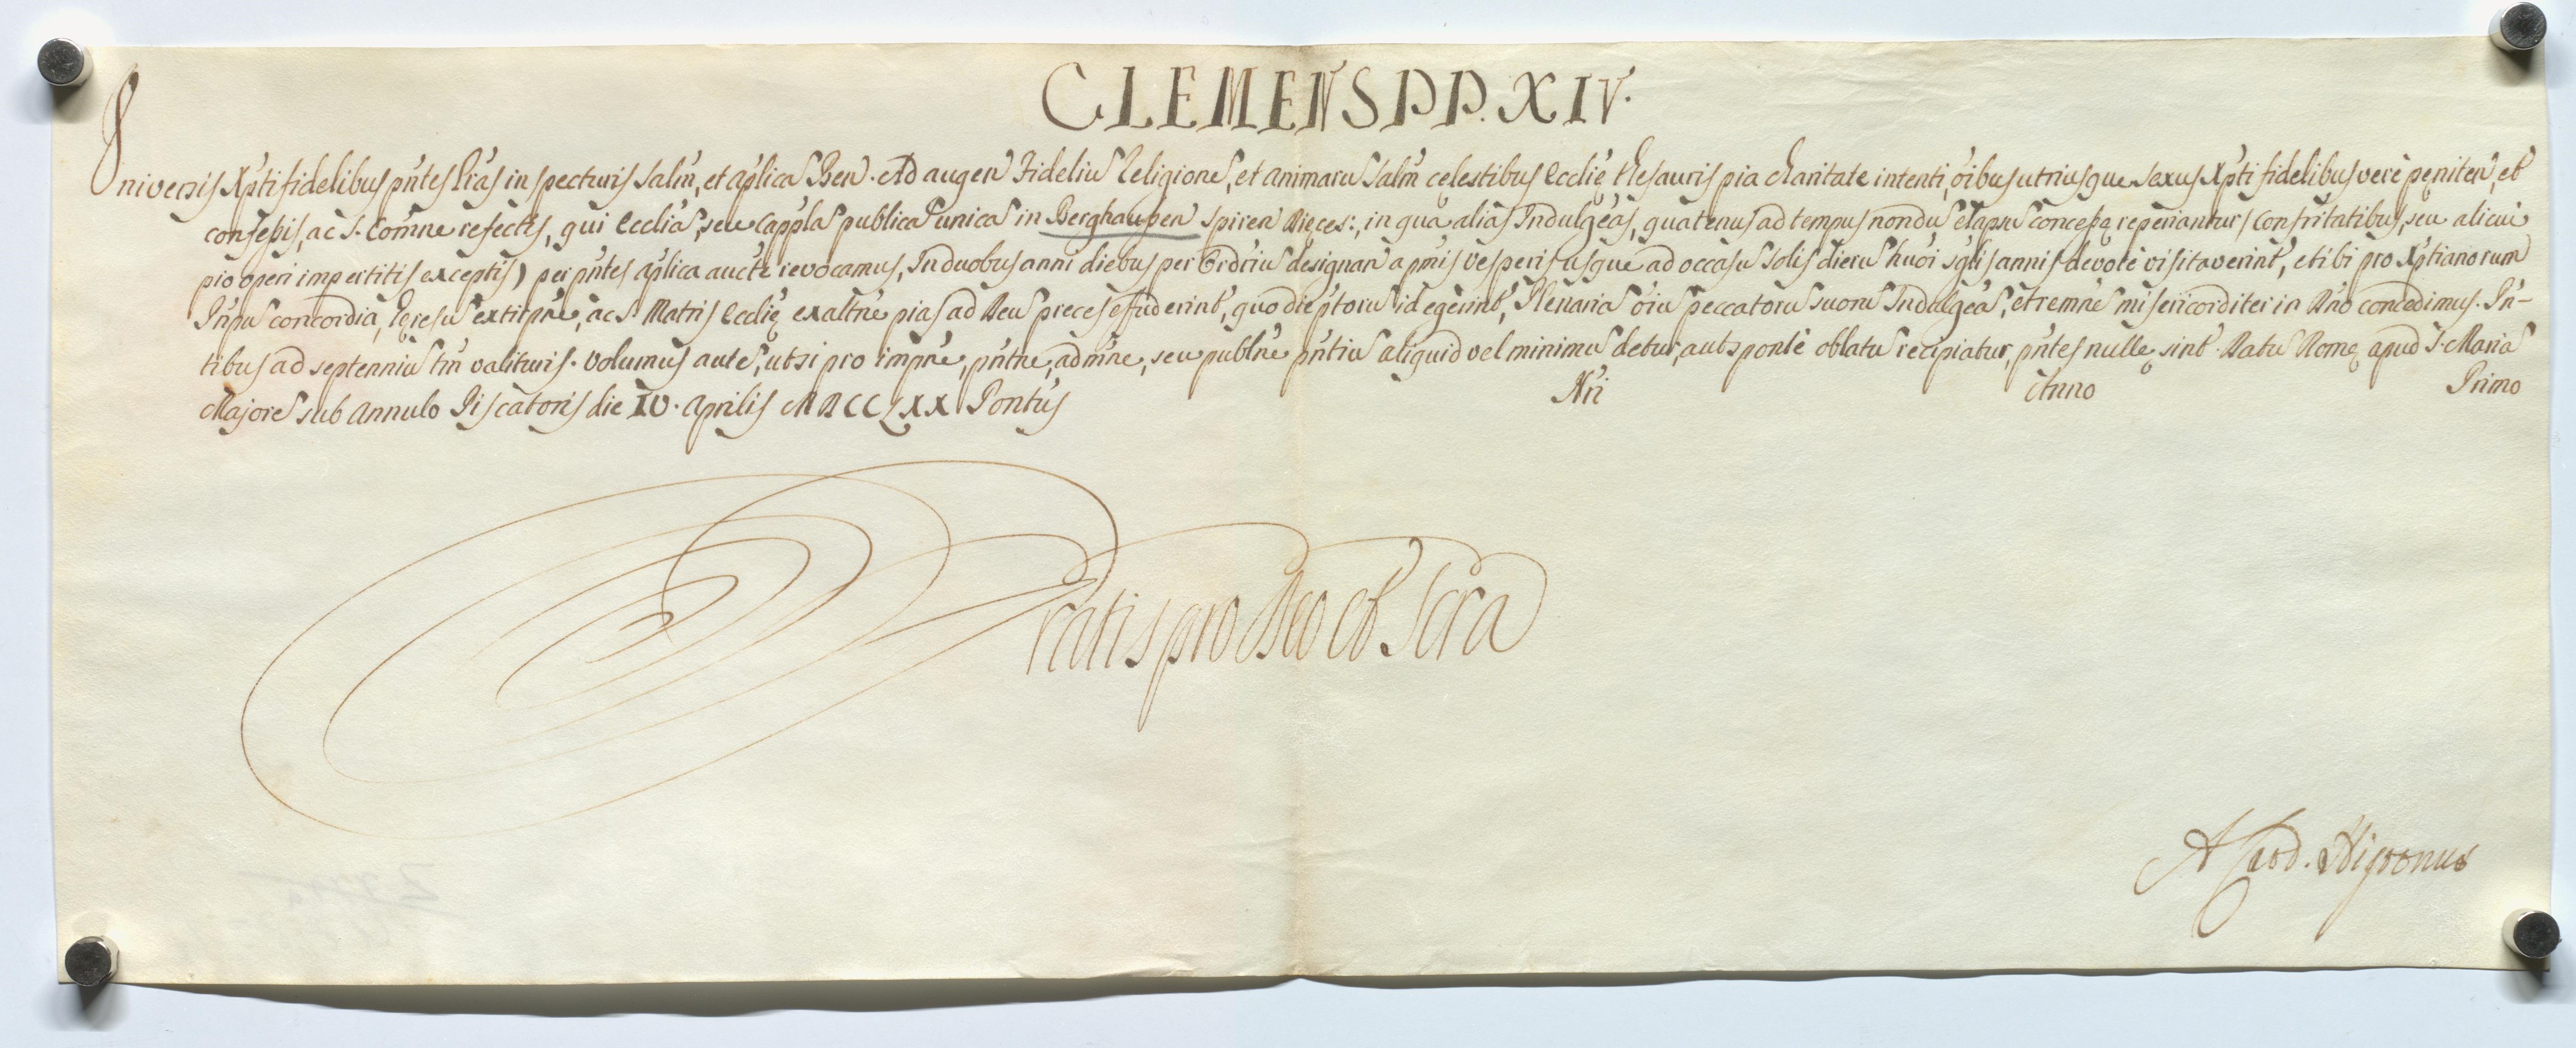 CLEMENS PP. XIV.
Universis Xp̃tifidelibus pñtes Lr̃as inspecturis Salm̃, et aplicã Ben. Ad augeñ Fideliũ Religionẽ, et animarũ Salm̃ celestibus Ecclię thesauris pia charitate intenti, oĩbus utriusque sexus Xp̃ti fidelibus verè pęniteñ, et
confeßis, ac S. Com̃ne refectis, qui Eccliã, seu Cappl̃ã publicã unicã in Berghaupen Spireñ Dięces:, in qua aliàs Indulgẽãs, quatenus ad tempus nondũ elapsũ conceßę reperiantur (confritatibus, seu alicui
pio operi impertitis exceptis) per pñtes aplica aucte revocamus, In duobus anni diebus per Ordriũ designañ a pm̃is vesperis usque ad occasũ Solis dierũ hũoi sglis annis devotè visitaverint, et ibi pro Xp̃tianorum
Prĩpũ concordia, Hęresũ extirpñe, ac S. Matris Ecclię exaltñe pias ad Deũ preces effuderint, quo die pr̃torũ id egerint, Plenariã oĩũ peccatorũ suorũ Indulgẽã, et rem̃nẽ misericorditer in Dño concedimus. Pñ-
tibus ad septenniũ tm̃ valituris. Volumus autẽ, ut si pro impñe, pñtñe, adm̃ne, seu publñe pñtiũ aliquid vel minimũ detur, aut sponte oblatũ recipiatur, pñtes nullę sint. Datũ Romę apud S. Mariã
Majorẽ sub Annulo Piscatoris die IV. Aprilis MDCCLXX Pontus Nri Anno Primo
Gratis pro Deo et Scra
A Card. Nigronus